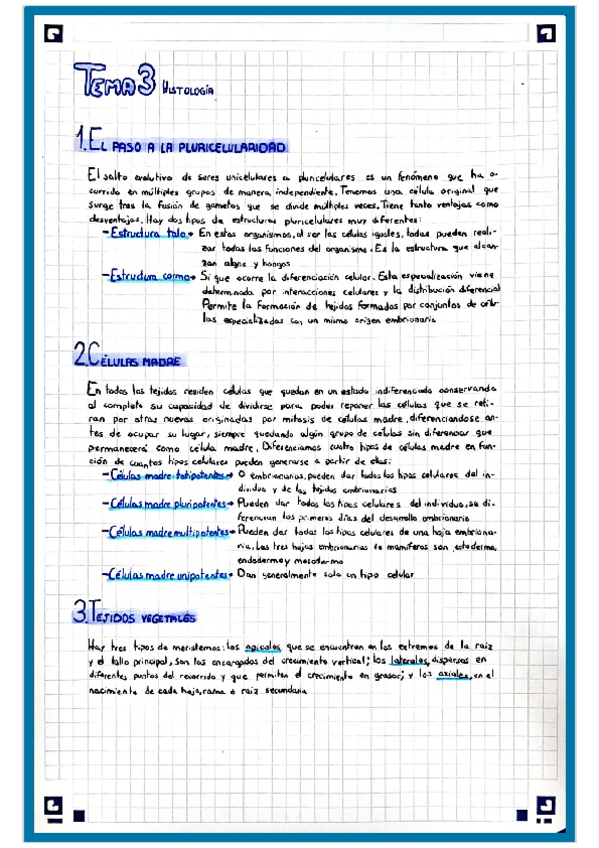 TEMA 3 HISTOLOGÍA
1. EL PASO A LA PLURICELULARIDAD
El salto evolutivo de seres unicelulares a pluricelulares es un fenómeno que ha o-
currido en múltiples grupos de manera independiente. Tenemos una célula original que
surge tras la fusión de gametos que se divide múltiples veces. Tiene tanto ventajas como
desventajas. Hay dos tipos de estructuras pluricelulares muy diferentes:
- Estructura talo → En estos organismos, al ser las células iguales, todas pueden reali-
zar todas las funciones del organismo. Es la estructura que alcan-
zan algas y hongos
- Estructura cormo → Si que ocurre la diferenciación celular. Esta especialización viene
determinada por interacciones celulares y la distribución diferencial
Permite la formación de tejidos formados por conjuntos de célu-
las especializadas con un mismo origen embrionario
2. CÉLULAS MADRE
En todos los tejidos residen células que quedan en un estado indiferenciado conservando
al completo su capacidad de dividirse para poder reponer las células que se reti-
ran por otras nuevas originadas por mitosis de células madre, diferenciandose an-
tes de ocupar su lugar, siempre quedando algún grupo de células sin diferenciar que
permanecerá como célula madre. Diferenciamos cuatro tipos de células madre en fun-
ción de cuantos tipos celulares pueden generarse a partir de ellas:
- Células madre totipotentes → O embrionarias, pueden dar todos los tipos celulares del in-
dividuo y de los tejidos embrionarios
- Células madre pluripotentes → Pueden dar todos los tipos celulares del individuo, se di-
ferencian los primeros días del desarrollo embrionario
- Células madre multipotentes → Pueden dar todos los tipos celulares de una hoja embriona-
ria. Las tres hojas embrionarias de mamíferos son ectodermo,
endodermo y mesodermo
- Células madre unipotentes → Dan generalmente solo un tipo celular
3. TEJIDOS VEGETALES
Hay tres tipos de meristemos: los apicales, que se encuentran en los extremos de la raíz
y el tallo principal, son los encargados del crecimiento vertical; los laterales, dispersos en
diferentes puntos del recorrido y que permiten el crecimiento en grosor; y los axiales, en el
nacimiento de cada hoja, rama o raíz secundaria